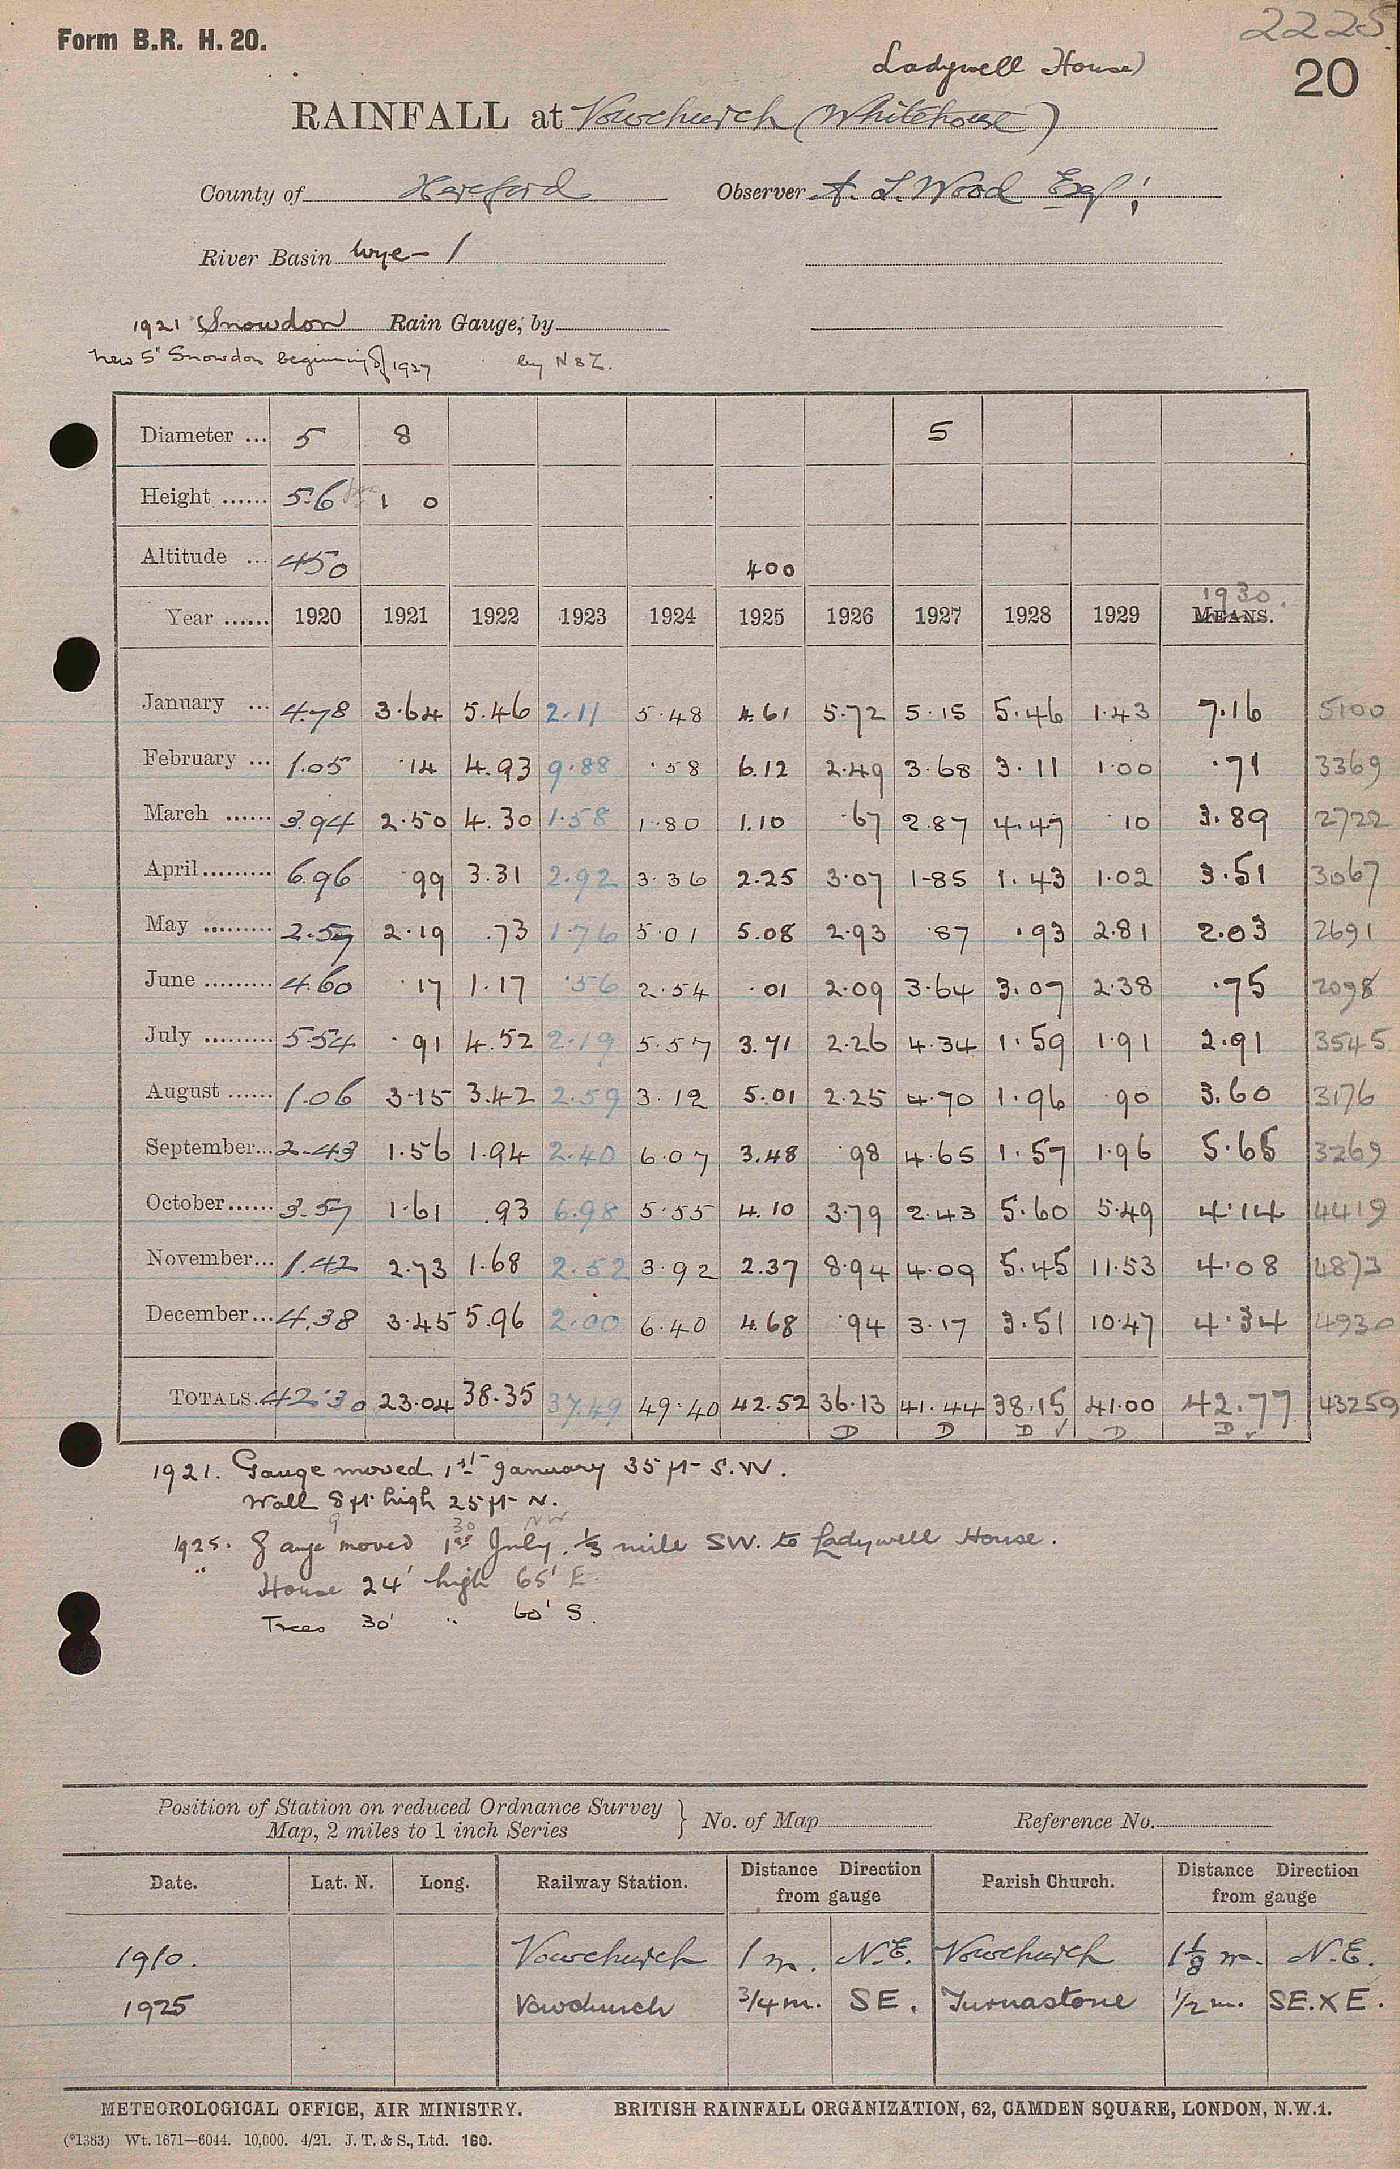 Form B.R. H. 20.
2225
20
Ladywell House)
RAINFALL at Vowchurch (Whitehouse)
County of Hereford Observer A. L. Wood Esq;
River Basin Wye - 1
1921 Snowdon Rain Gauge, by
New 5" Snowdon beginning of 1927 by N & Z.
Diameter ... 5 8 5
Height ...... 5.6 1 0
Altitude ... 450 400
1930.
Year ...... 1920 1921 1922 1923 1924 1925 1926 1927 1928 1929 MEANS.
January ... 4.78 3.64 5.46 2.11 5.48 1.61 5.72 5.15 5.46 1.43 7.16 5100
February ... 1.05 .14 4.93 9.88 .58 6.12 2.49 3.68 3.11 1.00 .71 3369
March ...... 3.94 2.50 4.30 1.58 1.80 1.10 .67 2.87 4.47 .10 3.89 2722
April ......... 6.96 .99 3.31 2.92 3.36 2.25 3.07 1.85 1.43 1.02 3.51 3067
May ......... 2.57 2.19 .73 1.76 5.01 5.08 2.93 .87 .93 2.81 2.03 2691
June ......... 4.60 .17 1.17 .56 2.54 .01 2.09 3.64 3.07 2.38 .75 2098
July ......... 5.54 .91 4.52 2.19 5.57 3.71 2.26 4.34 1.59 1.91 2.91 3545
August ...... 1.06 3.15 3.42 2.59 3.12 5.01 2.25 4.70 1.96 .90 3.60 3176
September... 2.43 1.56 1.94 2.40 6.07 3.48 .98 4.65 1.57 1.96 5.65 3269
October...... 3.57 1.61 .93 6.98 5.55 4.10 3.79 2.43 5.60 5.49 4.14 4419
November... 1.42 2.73 1.68 2.52 3.92 2.37 8.94 4.09 5.45 11.53 4.08 4873
December... 4.38 3.45 5.96 2.00 6.40 4.68 .94 3.17 3.51 10.47 4.34 4930
TOTALS. 42.30 23.04 38.35 37.49 49.40 42.52 36.13 41.44 38.15 41.00 42.77 43259
D D D ✓ D D ✓
1921. Gauge moved 1st January 35 ft S.W.
Wall 8 ft high 25 ft N.
9 30 NW
1925. Gauge moved 1st July. 1/3 mile SW. to Ladywell House.
" House 24' high 65' E.
Trees 30' " 60' S.
Position of Station on reduced Ordnance Survey
Map, 2 miles to 1 inch Series } No. of Map Reference No.
Date. Lat. N. Long. Railway Station. Distance Direction from gauge Parish Church. Distance Direction from gauge
1910. Vowchurch 1 m. N.E. Vowchurch 1 1/8 m. N.E.
1925 Vowchurch 3/4 m. SE. Turnastone 1/2 m. SE.XE.
METEOROLOGICAL OFFICE, AIR MINISTRY. BRITISH RAINFALL ORGANIZATION, 62, CAMDEN SQUARE, LONDON, N.W.1.
(*1383) Wt. 1671—6044. 10,000. 4/21. J. T. & S., Ltd. 160.